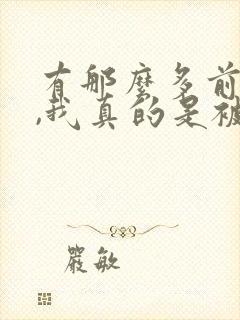 有那麼多前
,我真的是被
嚴敏